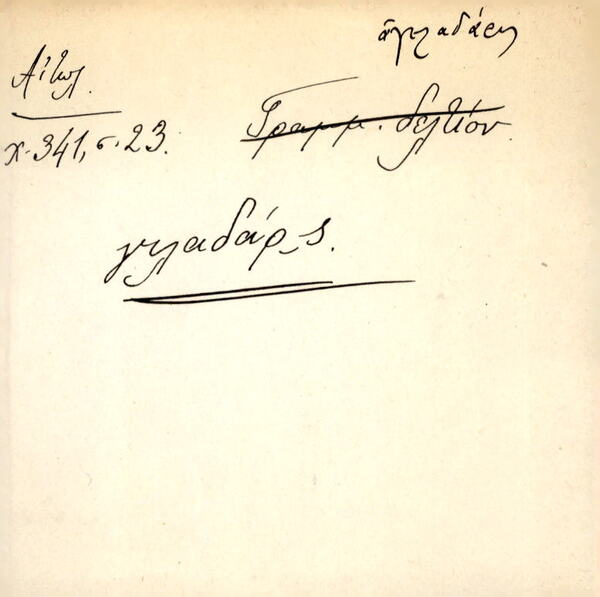 ἀγελαδάρης
Αἰτωλ.
χ. 341, σ. 23.
Γραμμ. δελτίον.
γελαδάρ̣ς.